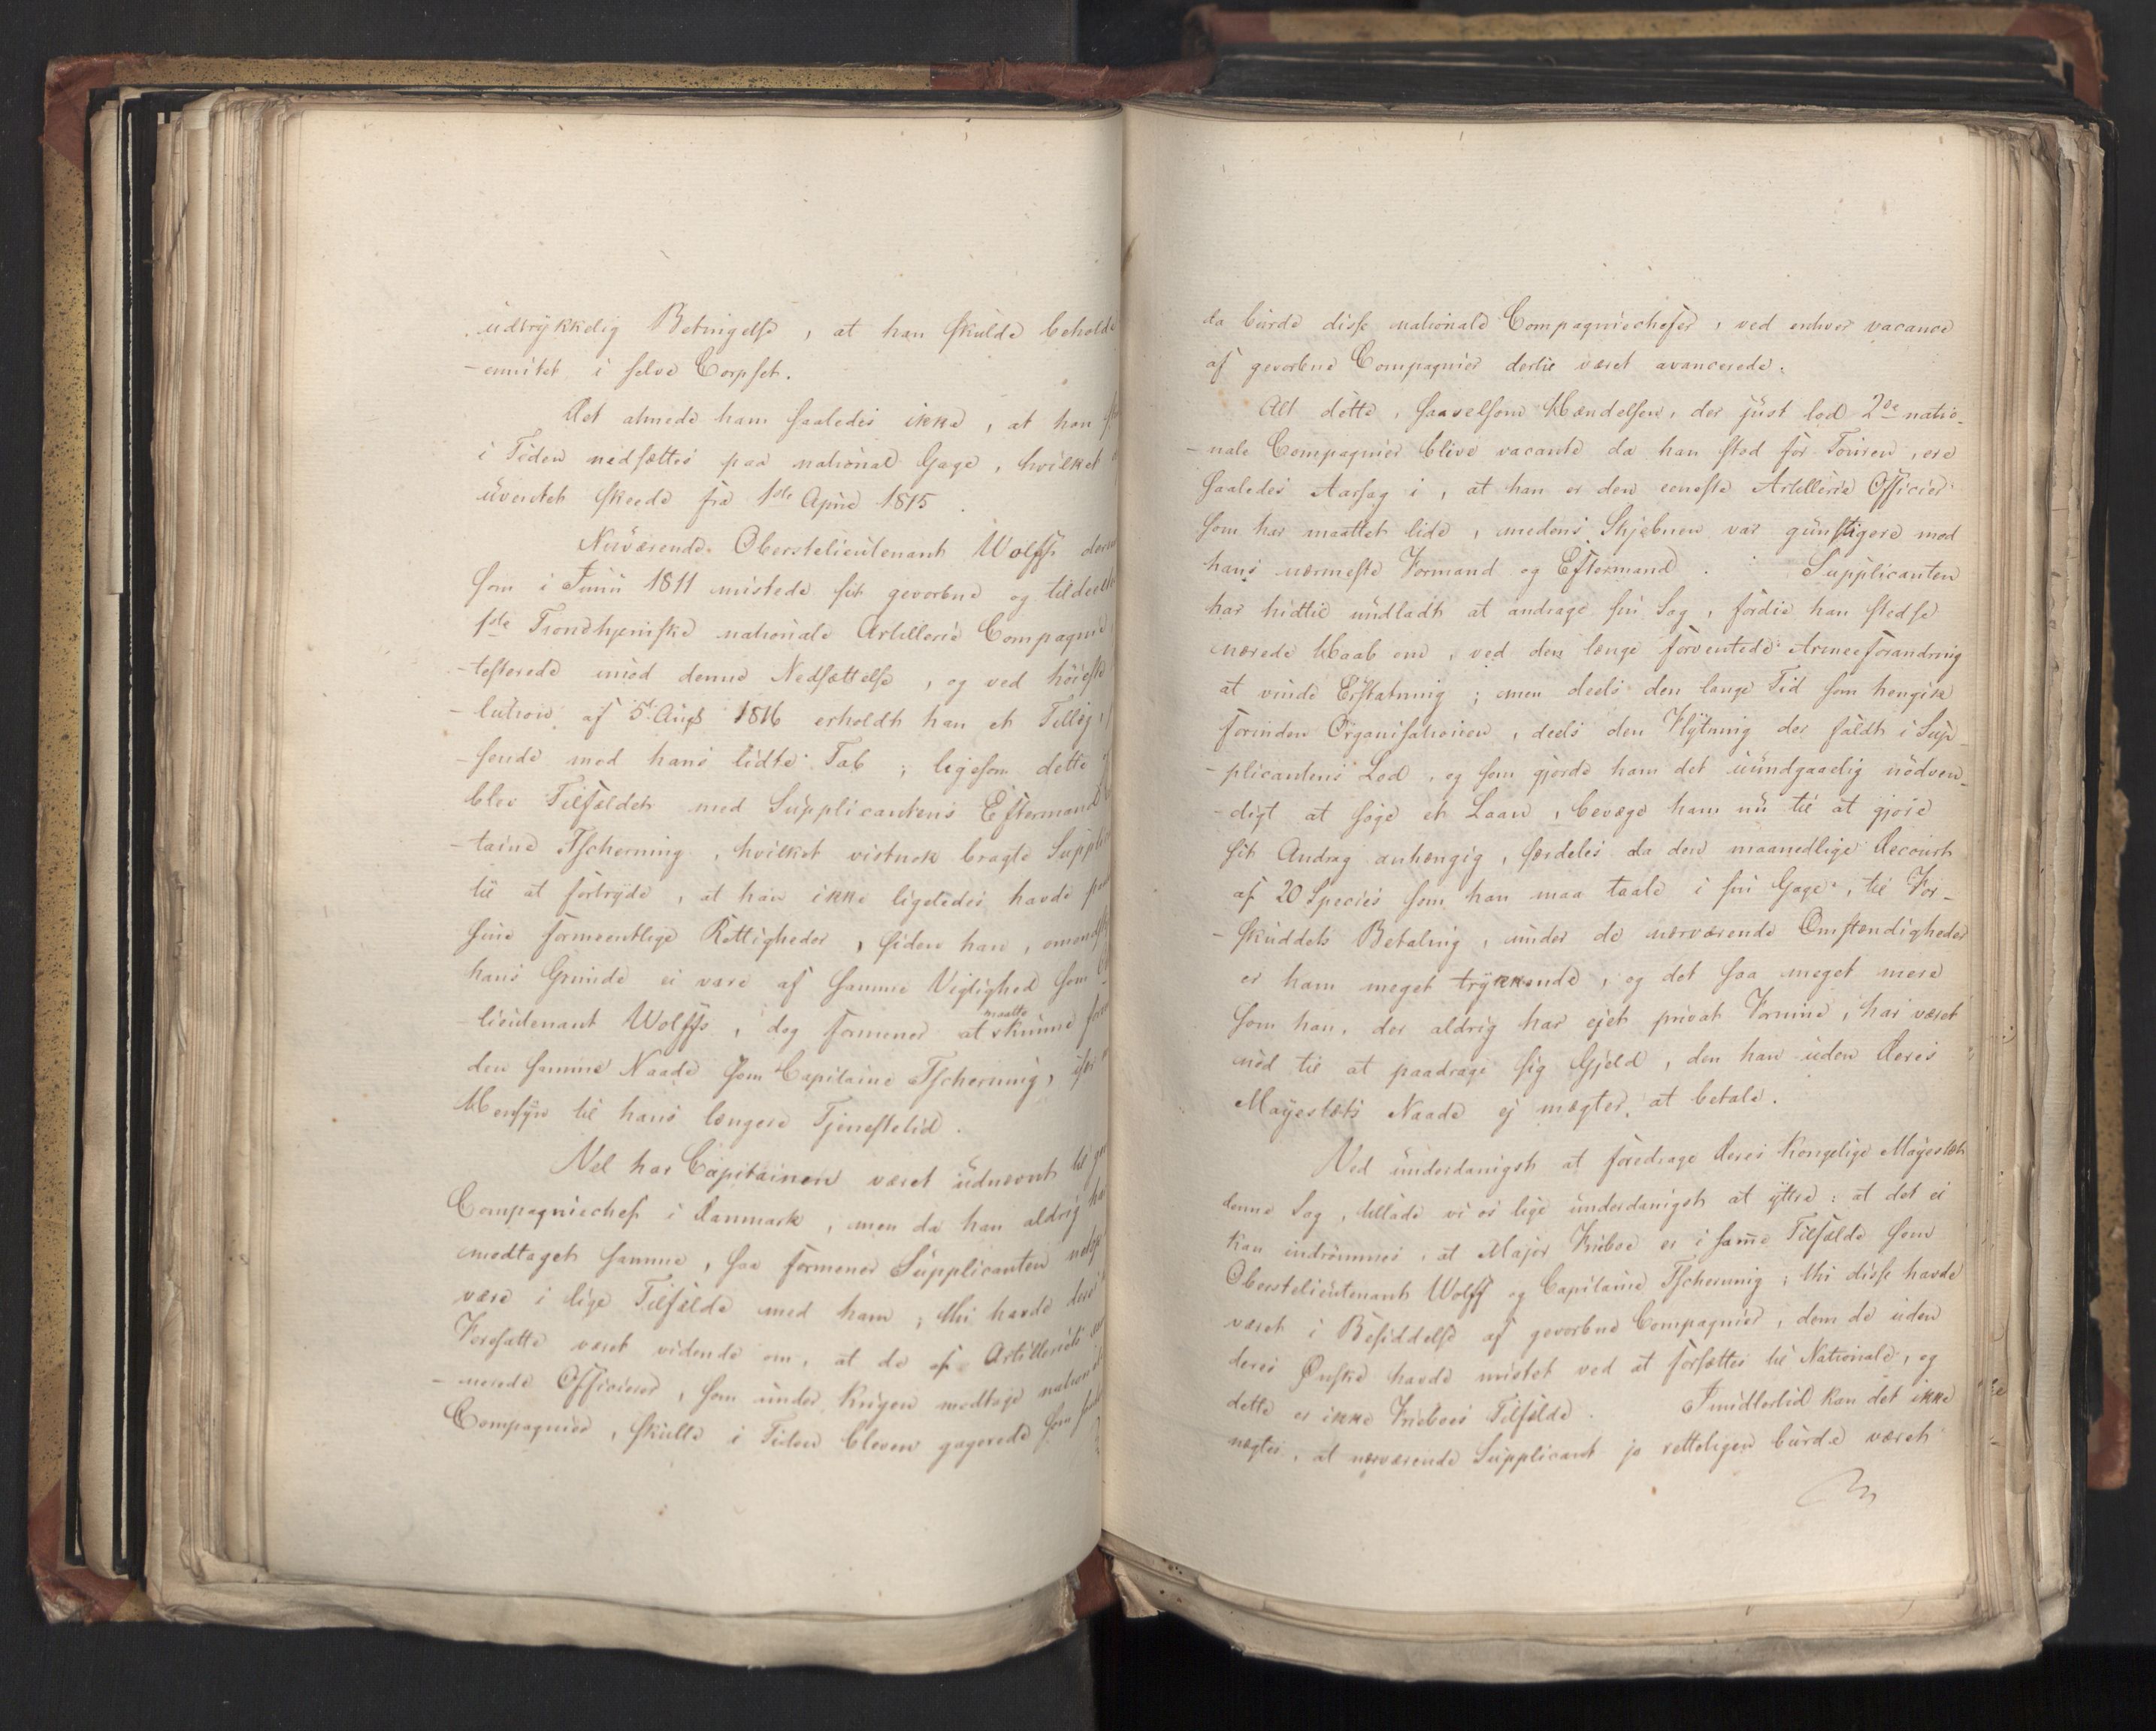 udtrykkelig Betingelse, at han skulde beholde
-ennitet i selve Corpset.
Det ahnede ham saaledes ikke, at han
i Tiden nedsættes paa national Gage, hvilket
uventet skeede fra 1ste April 1815.
Nuværende Oberstelieutenant Wolff
som i Junii 1811 mistede sit gevorbne og tildeeltes
1ste Trondhjemske nationale Artillerie Compagnie
-testerede imod denne Nedsættelse, og ved höieste
-lution af 5te Augs 1816 erholdt han et Tillæg,
-sende med hans lidte Tab; ligesom dette
blev Tilfældet med Supplicantens Eftermand
-taine Tscherning, hvilket vistnok bragte
til at fortryde, at han ikke ligeledes havde
sine formeentlige Rettigheder, siden han,
hans Grunde ei vare af samme Vigtighed som
-lieutenant Wolffs, dog formener at maatte kunne
den samme Naade som Capitaine Tscherning,
Hensyn til hans længere Tjenestetid.
Vel har Capitainen været udnævnt til
Compagniechef i Danmark, men da han aldrig
modtaget samme, saa formener Supplicanten
være i lige Tilfælde med ham; thi havde
Foresatte været vidende om, at de af Artilleriets
-nerede Officierer, som under Krigen modtage
Compagnier, skulle i Tiden bleven gagerede som
da burde disse nationale Compagniechefer, ved enhver vacance
af gevorbne Compagnier dertil været avancerede.
Alt dette, saavelsom Hændelsen, der just lod 2de natio-
-nale Compagnier blive vacante da han stod for Touren, ere
saaledes Aarsag i, at han er den eeneste Artillerie Officier
som har maattet lide, medens Skjebnen var gunstigere mod
hans nærmeste Formand og Eftermand. Supplicanten
har hidtil undladt at andrage sin Sag, fordie han stedse
nærede Haab om, ved den længe forventede Armeeforandring
at vinde Erstatning; men deels den lange Tid som hengik
forinden Organisationen, deels den Flytning der faldt i Sup-
-plicantens Lod, og som gjorde ham det uundgaaelig nödven-
-digt at söge et Laan, bevæge ham nu til at gjöre
sit Andrag anhængig, særdeles da den maanedlige Decourt
af 20 Species som han maa taale i sin Gage, til For-
-skuddets Betaling, under de nærværende Omstændigheder
er ham meget trykkende, og det saa meget mere
som han, der aldrig har ejet privat Formue, har været
nöd til at paadrage sig Gjeld, den han uden Deres
Mayestæts Naade ej mægter at betale.
Ved underdanigst at foredrage Deres Kongelige Mayestæt
denne Sag, tillade vi os lige underdanigst at yttre: at det ei
kan indrömmes, at Major Krieboe er i same Tilfælde som
Oberstelieutenant Wolff og Capitaine Tscherning; thi disse havde
været i Besiddelse af gevorbne Compagnier, dem de uden
deres Ønske havde mistet ved at forsættes til Nationale, og
dette er ikke Krieboes Tilfælde. Imidlertid kan det ikke
nægtes, at nærværende Supplicant jo retteligen burde været